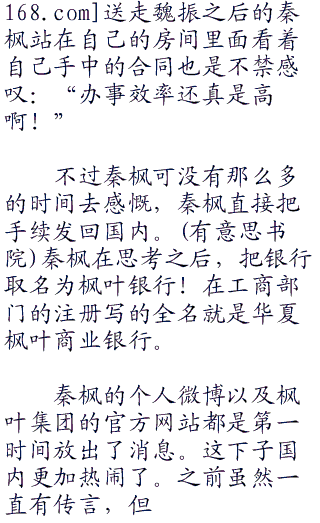 168.com]送走魏振之后的秦
枫站在自己的房间里面看着
自己手中的合同也是不禁感
叹：“办事效率还真是高
啊！”
不过秦枫可没有那么多
的时间去感慨，秦枫直接把
手续发回国内。(有意思书
院)秦枫在思考之后，把银行
取名为枫叶银行！在工商部
门的注册写的全名就是华夏
枫叶商业银行。
秦枫的个人微博以及枫
叶集团的官方网站都是第一
时间放出了消息。这下子国
内更加热闹了。之前虽然一
直有传言，但